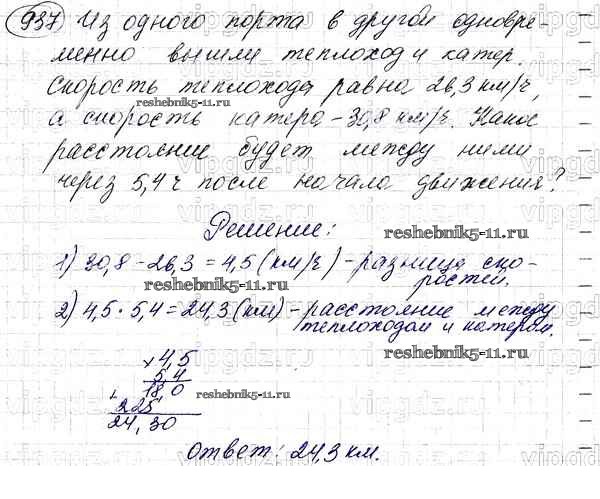 937 Из одного порта в другой одновре-
менно вышли теплоход и катер.
Скорость теплохода равна 26,3 км/ч,
reshebnik5-11.ru
а скорость катера - 30,8 км/ч. Какое
расстояние будет между ними
через 5,4 ч после начала движения?
Решение:
reshebnik5-11.ru
1) 30,8 - 26,3 = 4,5 (км/ч) - разница ско-
ростей.
2) 4,5 · 5,4 = 24,3 (км) - расстояние между
теплоходом и катером.
× 4,5
5,4
+ 18,0 reshebnik5-11.ru
225
24,30
Ответ: 24,3 км.